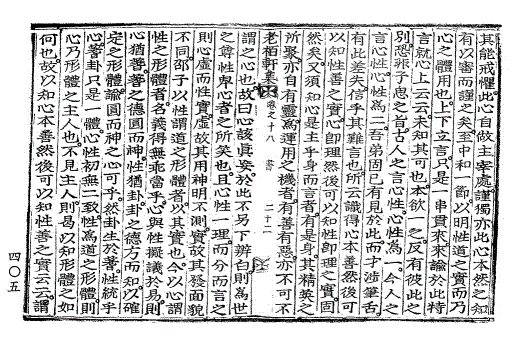 其能戒懼此心自做主宰處謹獨亦此心本然之知
有以審而謹之矣至中和一節以明性道之實而乃
心之體用也上下立言只是一串貫來來論於此特
言就心上云云未知其可也本欲一之反有彼此之
別恐非子思之首古人之言心性心性爲一今人之
言心性心性爲二吾弟固已有見於此而才涉筆舌
有此差失信乎其難言也所云識得心本善然後可
以知性善之實心卽理然後可以知性卽理之實固
然矣又須知心是主乎身而言者有是身其精英之
所聚亦自有靈爲運用之機者有善有惡亦不可不
老栢軒集 卷之十八 書 二十二
謂之心也故曰心該眞妄於此不另下辨白則爲世
之尊性卑心者之所笑也且心性一理而分而言之
則心虛而性實虛故其用神明不測實故其發面貌
不同邵子以性謂道之形體者以其實也今以心謂
性之形體者名義得無乖當乎心與性擬議於易則
心猶蓍蓍之德圓而神性猶卦卦之德方而知以確
定之形體諭圓而神之心可乎然卦生於蓍性統乎
心蓍卦只是一體心性初無二致性爲道之形體則
心乃形體之主人也不見主人則曷以知形體之如
何也故以知心本善然後可以知性善之實云云謂
四〇五